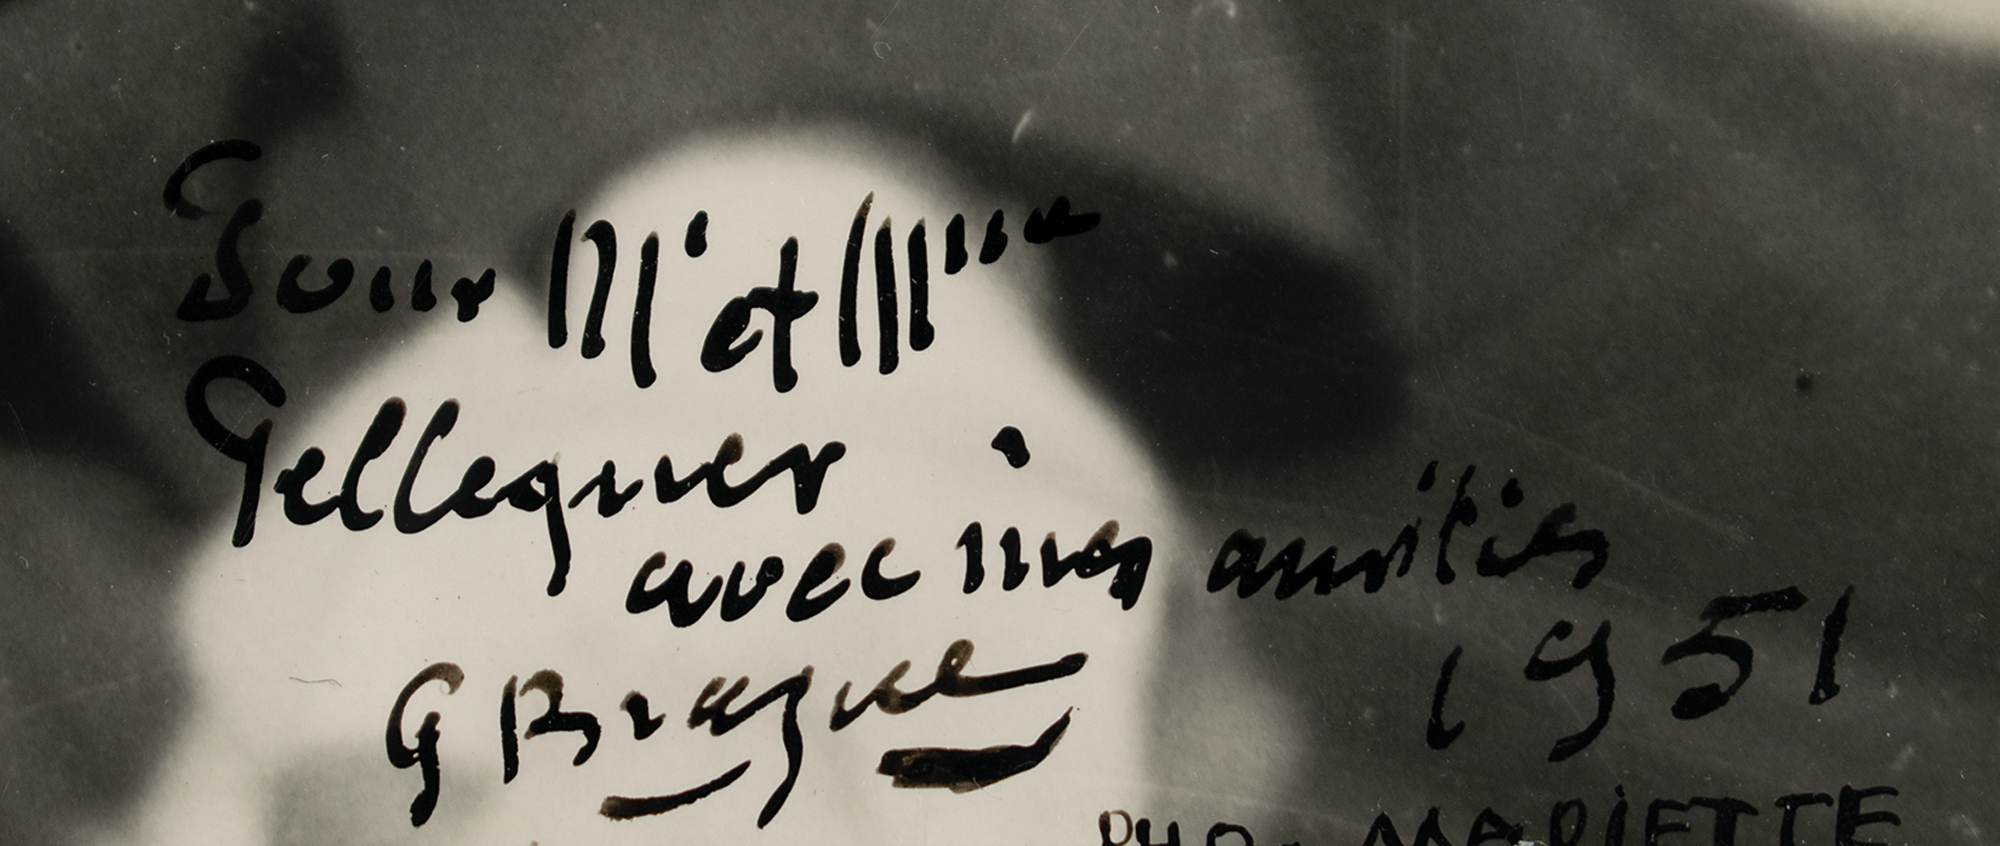 Pour M. et Mme
Pellequer
avec mes amitiés
1951
G Braque
PHO. MARIETTE